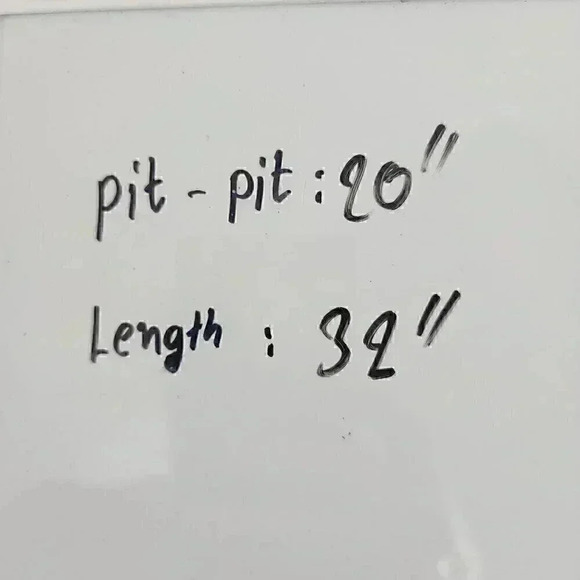 pit - pit : 20"
Length : 32"